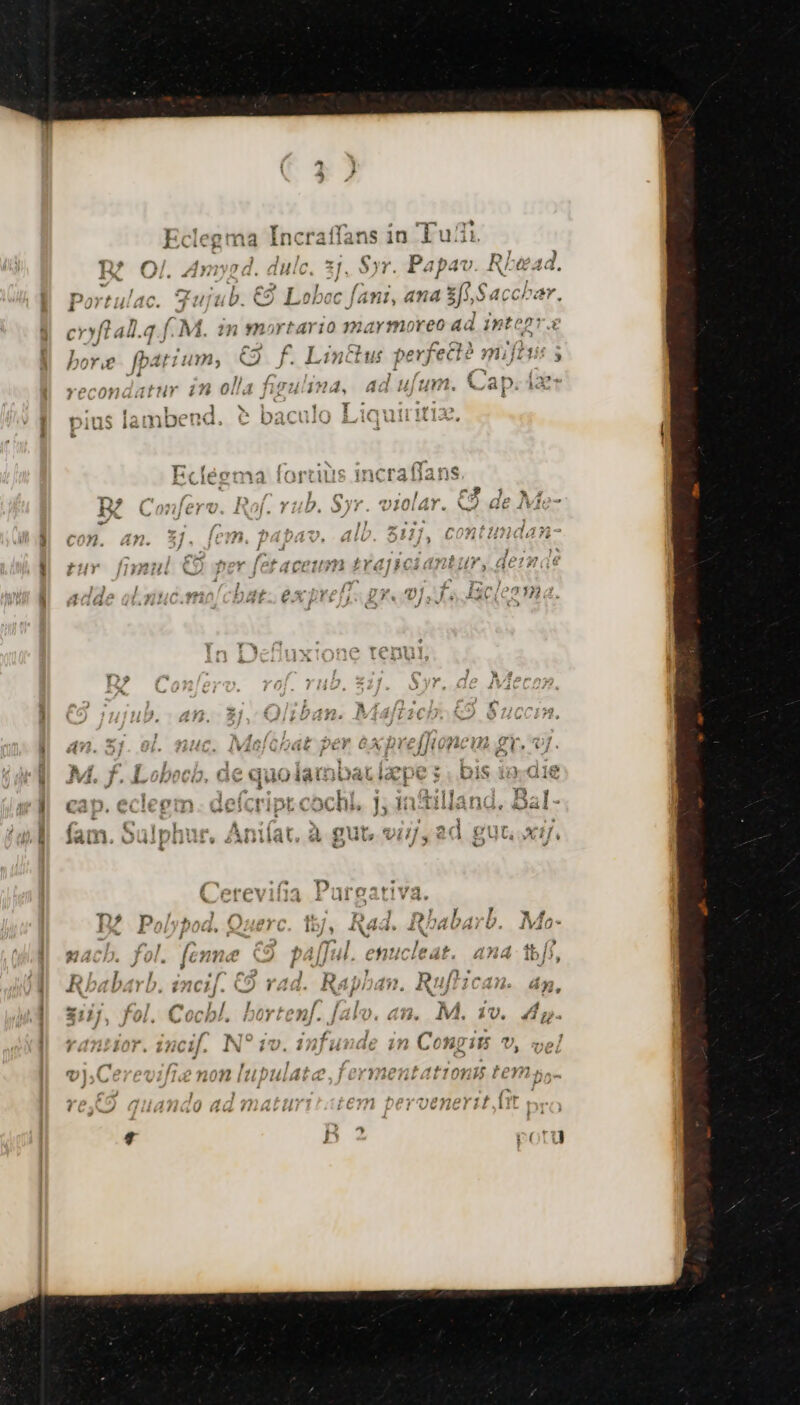 ( 3 )
Eclegma Incraſſans in Tuſſi.
℞ Ol. Amygd. dulc. ℥j. Syr. Papav. Rhœad.
Portulac. Jujub. & Lohoc ſani, ana ℥ſs, Sacchar.
cryſtall. q. ſ. M. in mortario marmoreo ad integræ
horæ ſpatium, & f. Linctus perfectè miſtus ;
recondatur in olla figulina, ad uſum. Cap. ſæ-
pius lambend. è baculo Liquiritiæ.
Eclégma fortiùs incraſſans.
℞ Conſerv. Roſ. rub. Syr. violar. & de Me-
con. an. ℥j. ſem. papav. alb. ʒiij, contundan-
tur ſimul & per ſetaceum trajiciantur, deinde
adde ol. nuc. moſchat. expreſſ. gr. vj. f. Eclegma.
In Defluxione tenui.
℞ Conſerv. roſ. rub. ℥ij. Syr. de Mecon.
& jujub. an. ℥j, Oliban. Maſtich. & Succin.
an. ʒj. ol. nuc. Moſchat per expreſſionem gr. vj.
M. f. Lohoch, de quo lambat ſæpe ; bis in die
cap. eclegm. deſcript. cochl. j, inſtilland. Bal-
ſam. Sulphur. Aniſat. à gut. viij, ad gut. xij.
Cerevifia Purgativa.
℞ Polypod. Querc. ℔j, Rad. Rhabarb. Mo-
nach. fol. ſennæ & paſſul. enucleat. ana ℔ſs,
Rhabarb. inciſ. & rad. Raphan. Ruſtican. an.
℥iij, fol. Cochl. hortenſ. ſalv. an. M. iv. Au-
rantior. inciſ. N° iv. infunde in Congiis v, vel
vj, Cereviſiæ non lupulatæ, fermentationis tempo-
re, & quando ad maturitatem pervenerit, ſit pro
B 2 potu